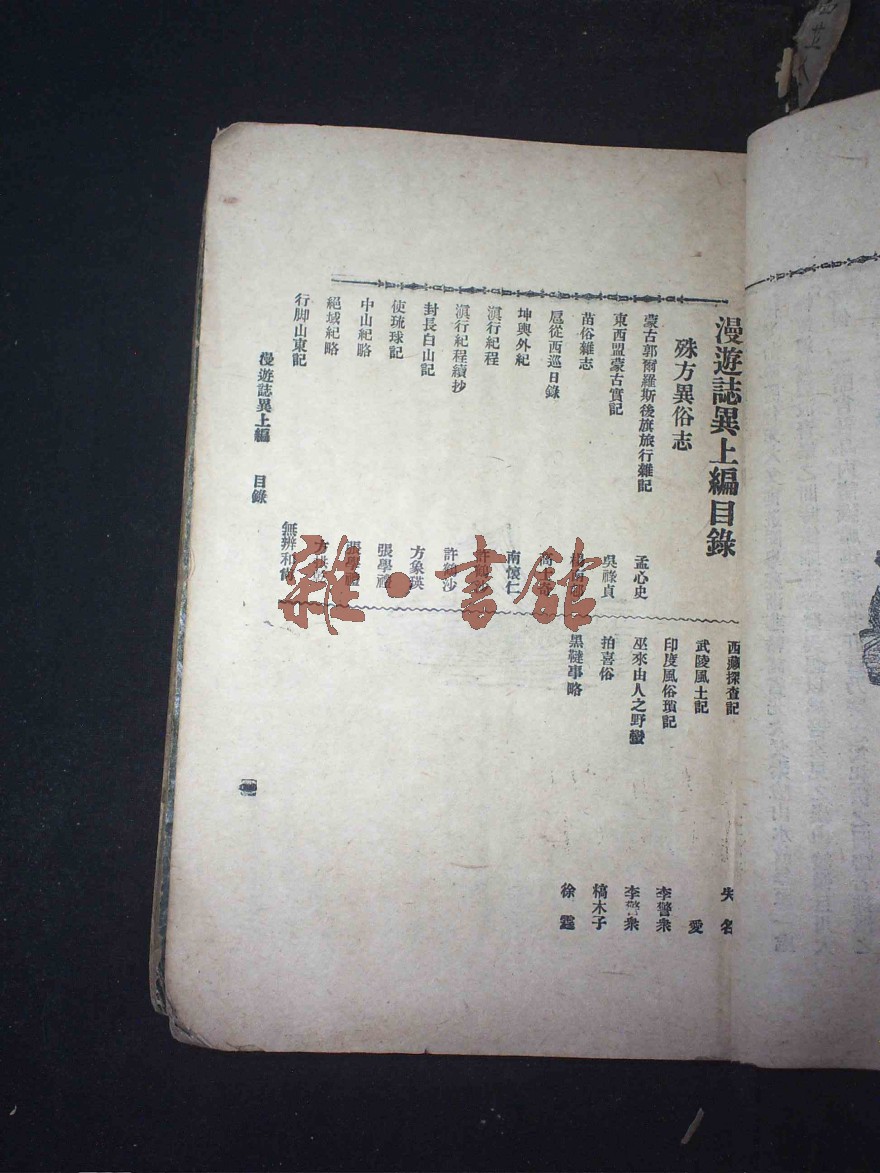 漫遊誌異上編目錄
殊方異俗志
蒙古郭爾羅斯後旗旅行雜記 孟心史
東西盟蒙古實記 吳祿貞
苗俗雜志
扈從西巡日錄
坤輿外紀 南懷仁
滇行紀程
滇行紀程續抄 許纘沙
封長白山記 方象瑛
使琉球記 張學禮
中山紀略 張學禮
絕域紀略
行脚山東記 無辨和尙
西藏探查記 失名
武陵風土記 愛
印度風俗瑣記 李警衆
巫來由人之野蠻 李警衆
拍喜俗 槁木子
黑韃事略 徐霆
漫遊誌異上編 目錄
雜·書館